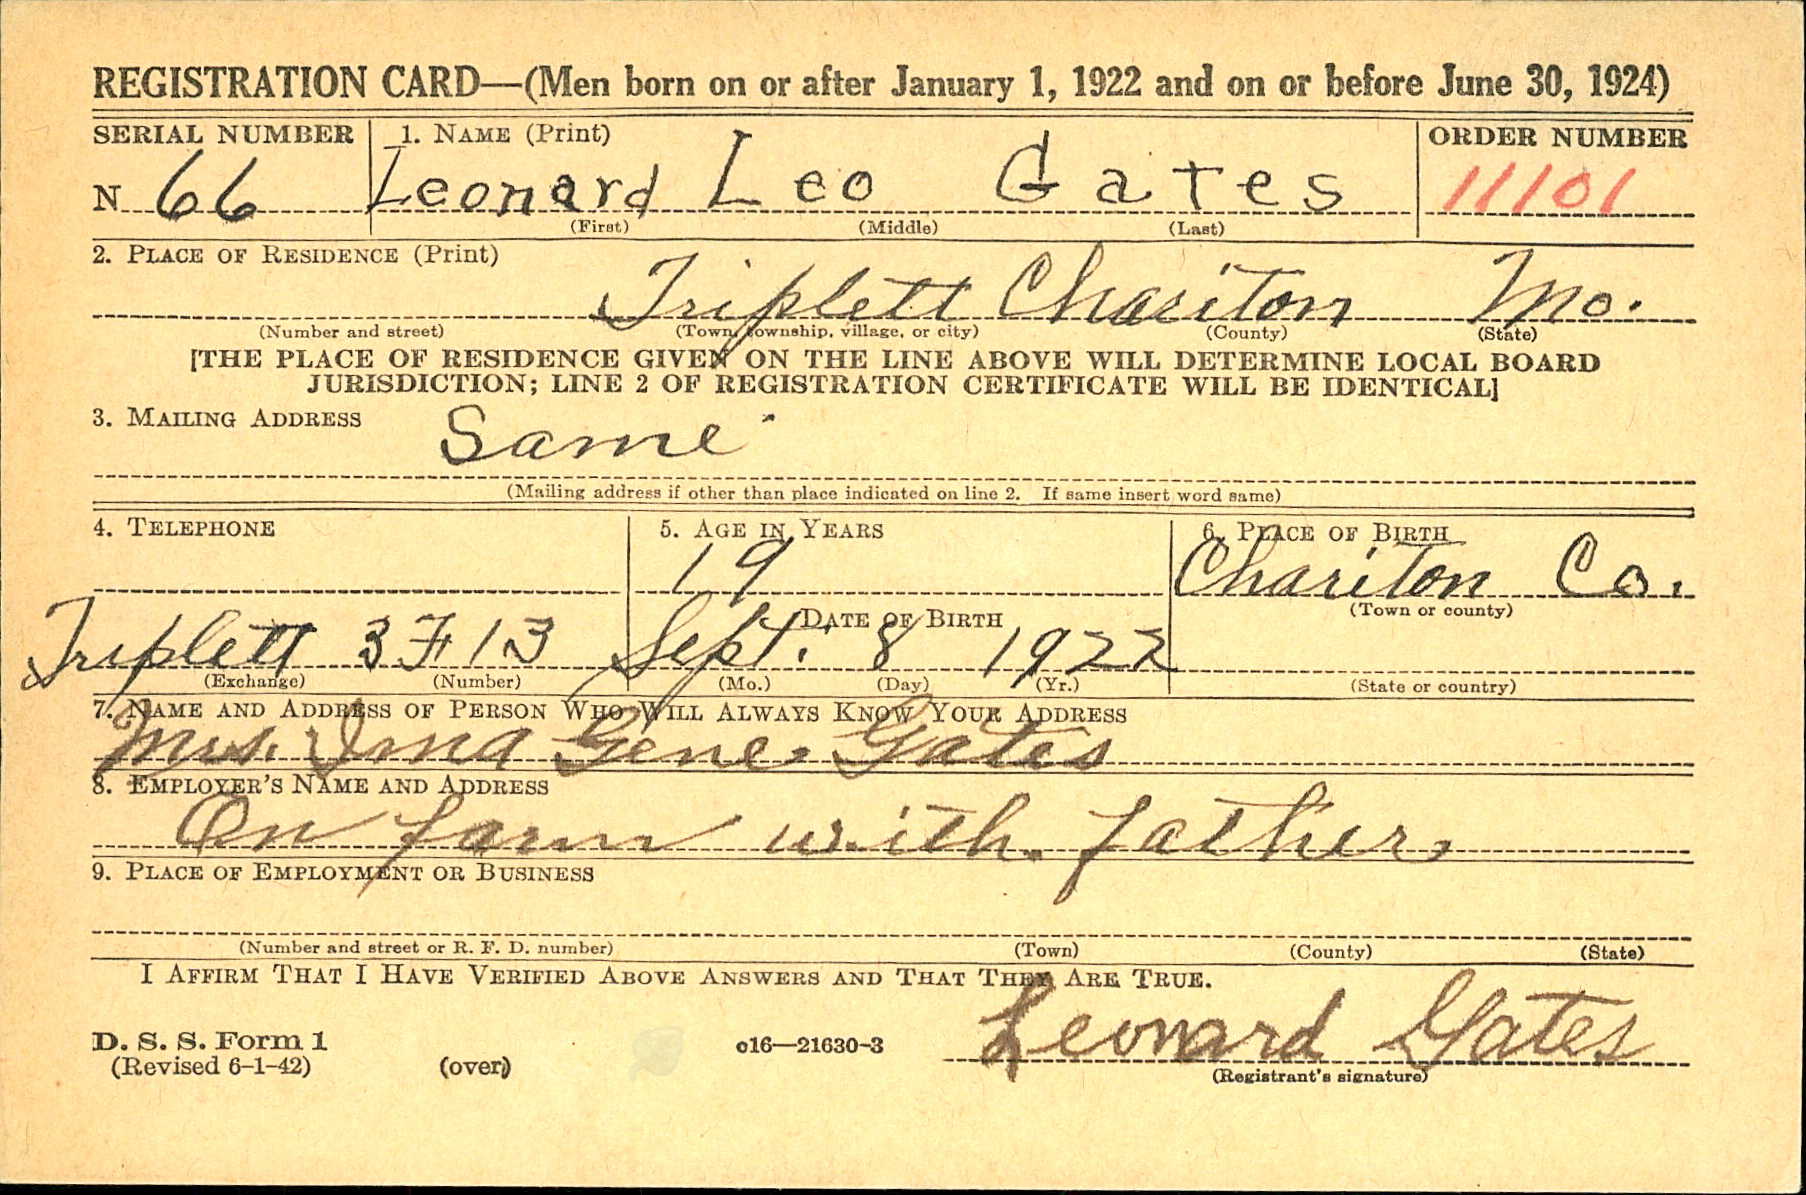 REGISTRATION CARD—(Men born on or after January 1, 1922 and on or before June 30, 1924)
SERIAL NUMBER 1. NAME (Print) ORDER NUMBER
N 66 Leonard Leo Gates 11101
(First) (Middle) (Last)
2. PLACE OF RESIDENCE (Print)
Triplett Chariton Mo.
(Number and street) (Town, township, village, or city) (County) (State)
[THE PLACE OF RESIDENCE GIVEN ON THE LINE ABOVE WILL DETERMINE LOCAL BOARD
JURISDICTION; LINE 2 OF REGISTRATION CERTIFICATE WILL BE IDENTICAL]
3. MAILING ADDRESS
Same
(Mailing address if other than place indicated on line 2. If same insert word same)
4. TELEPHONE 5. AGE IN YEARS 6. PLACE OF BIRTH
19 Chariton Co.
DATE OF BIRTH (Town or county)
Triplett 3F13 Sept. 8 1922
(Exchange) (Number) (Mo.) (Day) (Yr.) (State or country)
7. NAME AND ADDRESS OF PERSON WHO WILL ALWAYS KNOW YOUR ADDRESS
Mrs. Ima Gene Gates
8. EMPLOYER'S NAME AND ADDRESS
On farm with father
9. PLACE OF EMPLOYMENT OR BUSINESS
(Number and street or R. F. D. number) (Town) (County) (State)
I AFFIRM THAT I HAVE VERIFIED ABOVE ANSWERS AND THAT THEY ARE TRUE.
Leonard Gates
D. S. S. Form 1
(Revised 6-1-42) (over) c16—21630-3
(Registrant's signature)